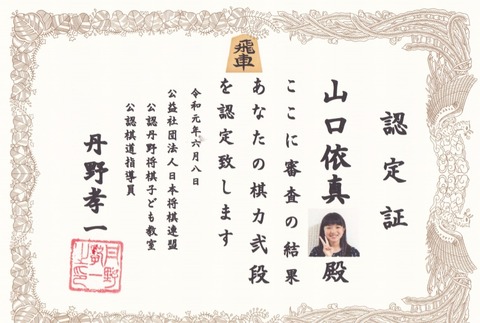 飛車
認定証
山口依真 殿
ここに審査の結果
あなたの棋力弐段
を認定致します
令和元年六月八日
公益社団法人日本将棋連盟
公認丹野将棋子ども教室
公認棋道指導員
丹野孝一